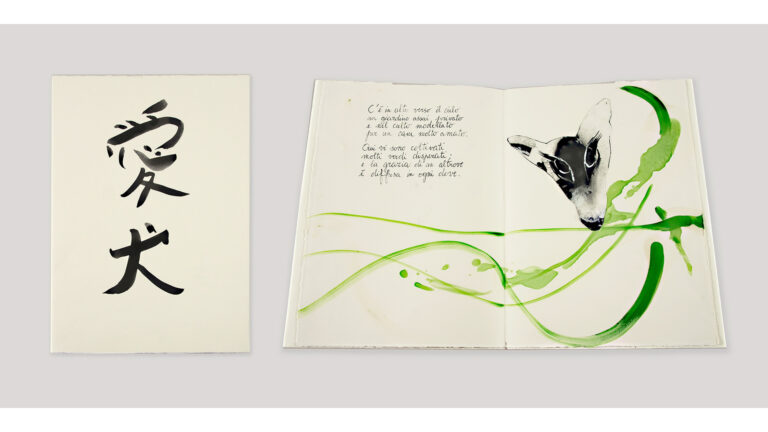 愛犬
C'è in alto verso il cielo
un giardino assai privato
e sul culto modellato
per un cane molto amato.
Qui vi sono coltivati
molti verdi disparati;
e la grazia di un altrove
è diffusa in ogni dove.